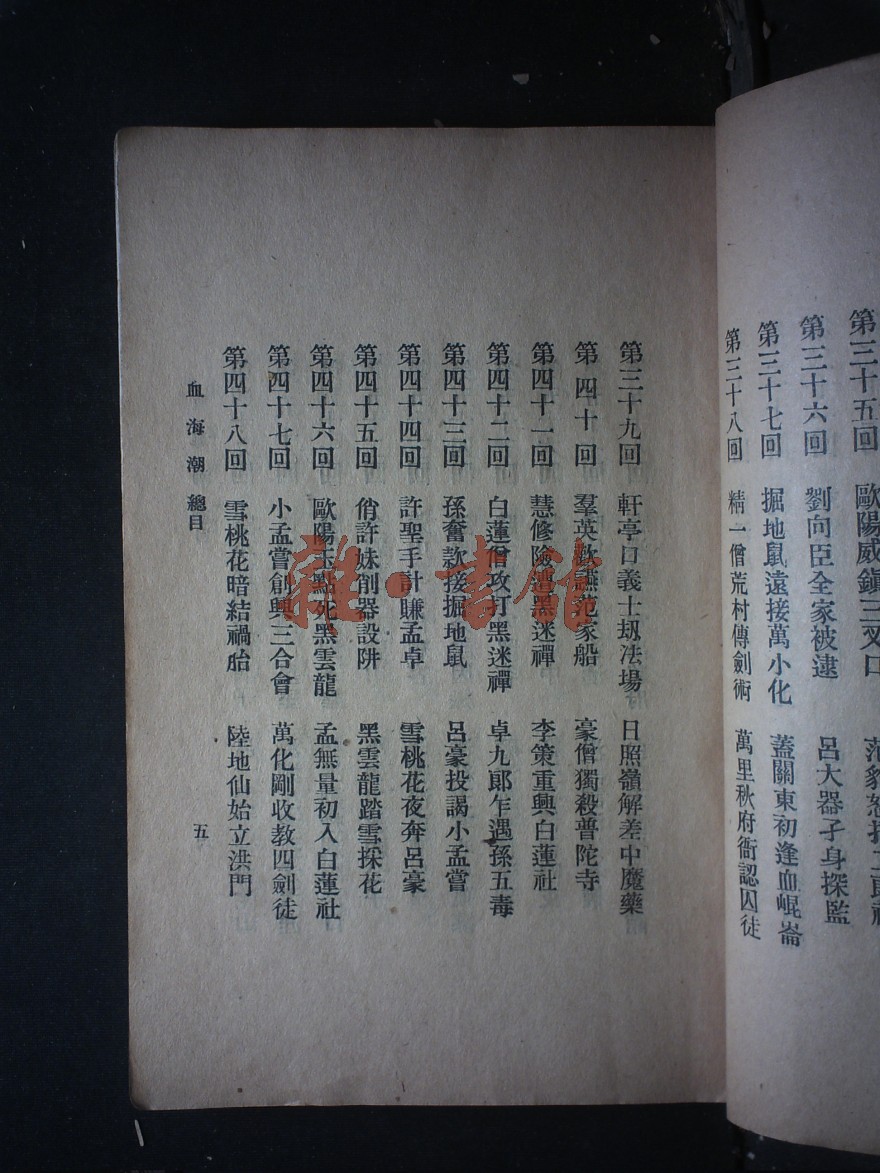 第三十五回 歐陽威鎮三叉口
第三十六回 劉向臣全家被逮 呂大器孑身探監
第三十七回 掘地鼠遠接萬小化 蓋關東初逢血崐崙
第三十八回 精一僧荒村傳劍術 萬里秋府衙認囚徒
第三十九回 軒亭口義士刼法場 日照嶺解差中魔藥
第四十回 羣英歡讌范家船 豪僧獨殺普陀寺
第四十一回 慧修險遭黑迷禪 李策重興白蓮社
第四十二回 白蓮僧攻打黑迷禪 卓九郎乍遇孫五毒
第四十三回 孫奮款接掘地鼠 呂豪投謁小孟嘗
第四十四回 許聖手計賺孟卓 雪桃花夜奔呂豪
第四十五回 俏許妹創器設阱 黑雲龍踏雪採花
第四十六回 歐陽玉點死黑雲龍 孟無量初入白蓮社
第四十七回 小孟嘗創興三合會 萬化剛收教四劍徒
第四十八回 雪桃花暗結禍胎 陸地仙始立洪門
血海潮 總目 五
雜·書館